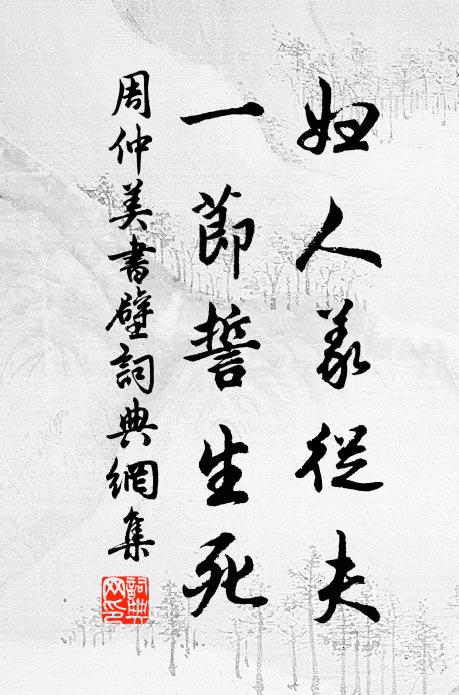 妇人義從夫
一節誓生死
周仲美書壁詞典網集
詞典网印